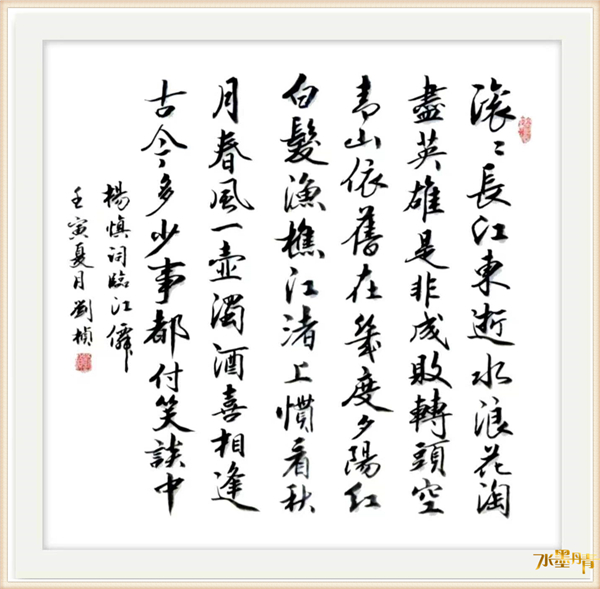 滚〻長江東逝水浪花淘
盡英雄是非成敗轉頭空
青山依舊在幾度夕陽紅
白髮漁樵江渚上慣看秋
月春風一壺濁酒喜相逢
古今多少事都付笑談中
楊慎詞臨江僊
壬寅夏月劉楨
水墨丹青